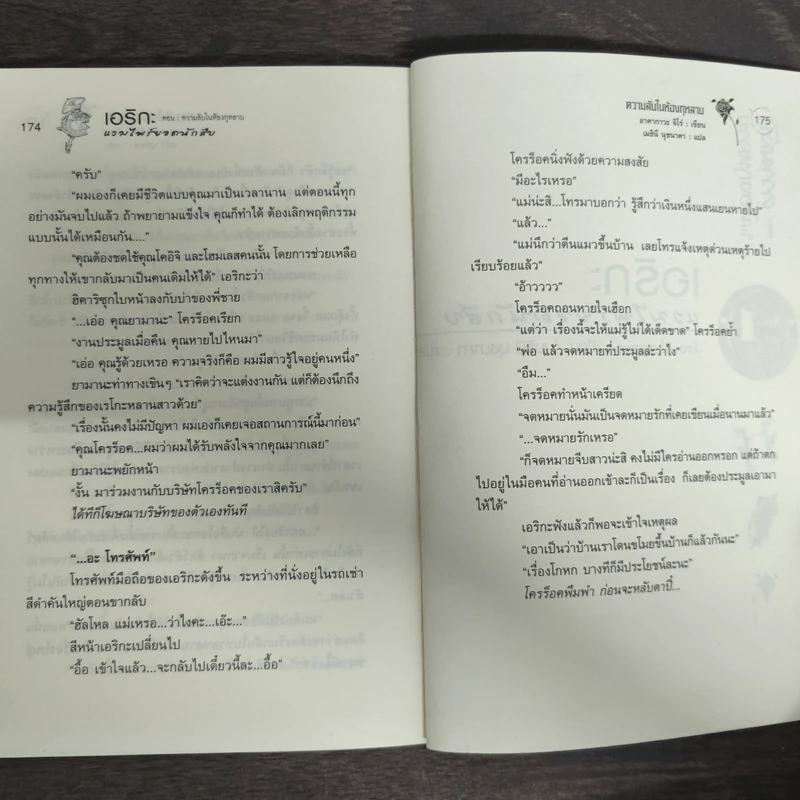 174
เอริกะ ตอน : ความลับในห้องกุหลาบ
แวมไพร์ยอดนักสืบ
“ครับ”
“ผมเองก็เคยมีชีวิตแบบคุณมาเป็นเวลานาน แต่ตอนนี้ทุก
อย่างมันจบไปแล้ว ถ้าพยายามแข็งใจ คุณก็ทำได้ ต้องเลิกพฤติกรรม
แบบนั้นได้เหมือนกัน....”
“คุณต้องชดใช้คุณโคอิจิ และโฮมเลสคนนั้น โดยการช่วยเหลือ
ทุกทางให้เขากลับมาเป็นคนเดิมให้ได้” เอริกะว่า
ฮิคาริซุกใบหน้าลงกับบ่าของพี่ชาย
“...เอ่อ คุณยามานะ” โครร็อคเรียก
“งานประมูลเมื่อคืน คุณหายไปไหนมา”
“เอ่อ คุณรู้ด้วยเหรอ ความจริงก็คือ ผมมีสาวรู้ใจอยู่คนหนึ่ง”
ยามานะทำท่าทางเขินๆ “เราคิดว่าจะแต่งงานกัน แต่ก็ต้องนึกถึง
ความรู้สึกของเรโกะหลานสาวด้วย”
“เรื่องนั้นคงไม่มีปัญหา ผมเองก็เคยเจอสถานการณ์นี้มาก่อน”
“คุณโครร็อค...ผมว่าผมได้รับพลังใจจากคุณมากเลย”
ยามานะพยักหน้า
“งั้น มาร่วมงานกับบริษัทโครร็อคของเราสิครับ”
ได้ทีก็โฆษณาบริษัทของตัวเองทันที
“...อะ โทรศัพท์”
โทรศัพท์มือถือของเอริกะดังขึ้น ระหว่างที่นั่งอยู่ในรถเช่า
สีดำคันใหญ่ตอนขากลับ
“ฮัลโหล แม่เหรอ...ว่าไงคะ...เอ๊ะ...”
สีหน้าเอริกะเปลี่ยนไป
“อื้อ เข้าใจแล้ว...จะกลับไปเดี๋ยวนี้ละ...อื้อ”
ความลับในห้องกุหลาบ
อาคากาวะ จิโร่ : เขียน
เมธินี นุชนาคา : แปล
175
โครร็อคนิ่งฟังด้วยความสงสัย
“มีอะไรเหรอ”
“แม่น่ะสิ...โทรมาบอกว่า รู้สึกว่าเงินหนึ่งแสนเยนหายไป”
“แล้ว...”
“แม่นึกว่าตีนแมวขึ้นบ้าน เลยโทรแจ้งเหตุด่วนเหตุร้ายไป
เรียบร้อยแล้ว”
“อ้าวววว”
โครร็อคถอนหายใจเฮือก
“แต่ว่า เรื่องนี้จะให้แม่รู้ไม่ได้เด็ดขาด” โครร็อคย้ำ
“พ่อ แล้วจดหมายที่ประมูลล่ะว่าไง”
“อืม...”
โครร็อคทำหน้าเครียด
“จดหมายนั่นมันเป็นจดหมายรักที่เคยเขียนเมื่อนานมาแล้ว”
“...จดหมายรักเหรอ”
“ก็จดหมายจีบสาวน่ะสิ คงไม่มีใครอ่านออกหรอก แต่ถ้าตก
ไปอยู่ในมือคนที่อ่านออกเข้าละก็เป็นเรื่อง ก็เลยต้องประมูลเอามา
ให้ได้”
เอริกะฟังแล้วก็พอจะเข้าใจเหตุผล
“เอาเป็นว่าบ้านเราโดนขโมยขึ้นบ้านก็แล้วกันนะ”
“เรื่องโกหก บางทีก็มีประโยชน์ละนะ”
โครร็อคพึมพำ ก่อนจะหลับตาปี๋...